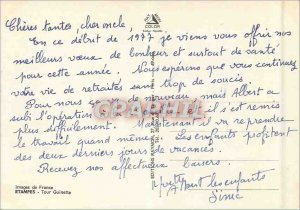 Chères tantes, cher oncle,
En ce début de 1997 je viens vous offrir nos
meilleurs vœux de bonheur et surtout de santé
pour cette année. Nous espérons que vous continuez
votre vie de retraités sans trop de soucis.
Pour nous de nouveau, mais Albert a
subi l'opération il s'est remis
plus difficilement. Maintenant il va reprendre
le travail quand même. Les enfants profitent
des deux derniers jours de vacances.
Recevez nos affectueux baisers.
Albert les enfants
Images de France
ETAMPES - Tour Guinette